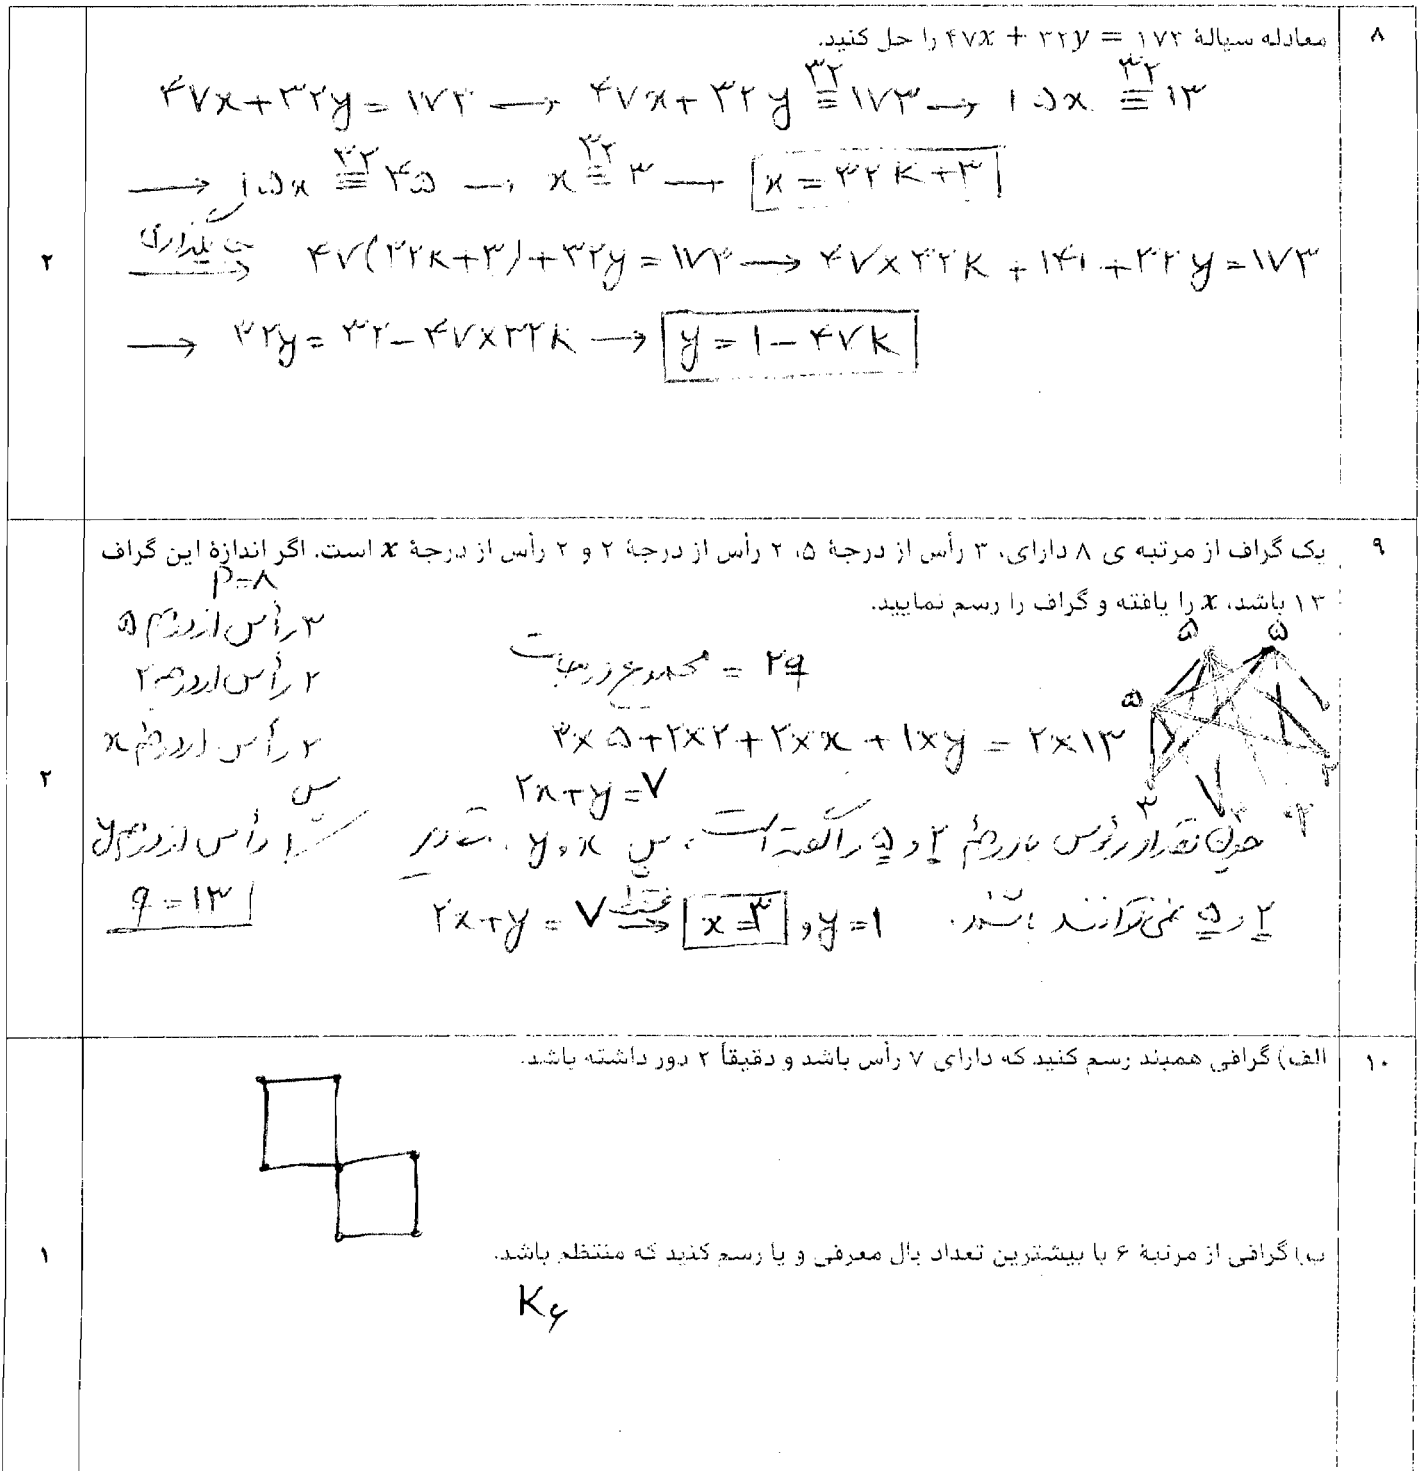 ۸
معادله سیالهٔ ۴۷x + ۳۲y = ۱۷۳ را حل کنید.
۴۷x + ۳۲y = ۱۷۳ → ۴۷x + ۳۲y ≡ ۱۷۳ → ۱۵x ≡ ۱۳
۳۲ ۳۲
→ ۱۵x ≡ ۴۵ → x ≡ ۳ → x = ۳۲k + ۳
۳۲ ۳۲
جایگذاری → ۴۷(۳۲k + ۳) + ۳۲y = ۱۷۳ → ۴۷ × ۳۲k + ۱۴۱ + ۳۲y = ۱۷۳
۲
→ ۳۲y = ۳۲ - ۴۷ × ۳۲k → y = ۱ - ۴۷k
۹
یک گراف از مرتبه ی ۸ دارای، ۳ رأس از درجهٔ ۵، ۲ رأس از درجهٔ ۲ و ۲ رأس از درجهٔ x است. اگر اندازهٔ این گراف
۱۳ باشد، x را یافته و گراف را رسم نمایید.
P=۸
۳ رأس از درجه ۵
۲ رأس از درجه ۲
۲ رأس از درجه x
۱ رأس از درجه y
q = ۱۳
مجموع درجات = ۲q
۳×۵+۲×۲+۲×x+۱×y = ۲×۱۳
۲x+y = ۷
۲
چون تعداد رئوس با درجه ۲ و ۵ را گفته است، پس x و y،
۲ و ۵ نمی‌توانند باشند. ۲x+y = ۷ فقط → x = ۳ و y = ۱
۵ ۵
۵
۳ ۲
۱۰
الف) گرافی همبند رسم کنید که دارای ۷ رأس باشد و دقیقاً ۲ دور داشته باشد.
ب) گرافی از مرتبهٔ ۶ با بیشترین تعداد یال معرفی و یا رسم کنید که منتظم باشد.
۱
K۶